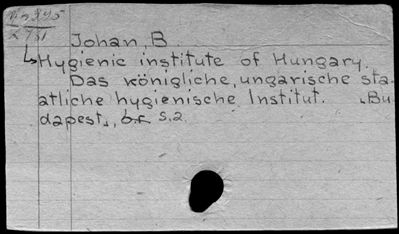 Johan B.
Hygienic institute of Hungary.
Das königliche, ungarische sta-
atliche hygienische Institut. „Bu-
dapest„, S.a.